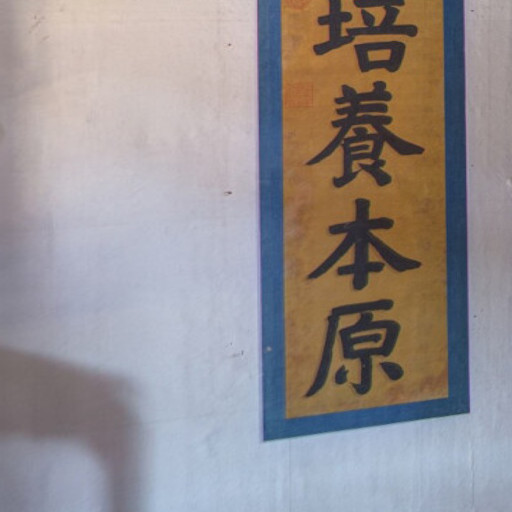 培養本原